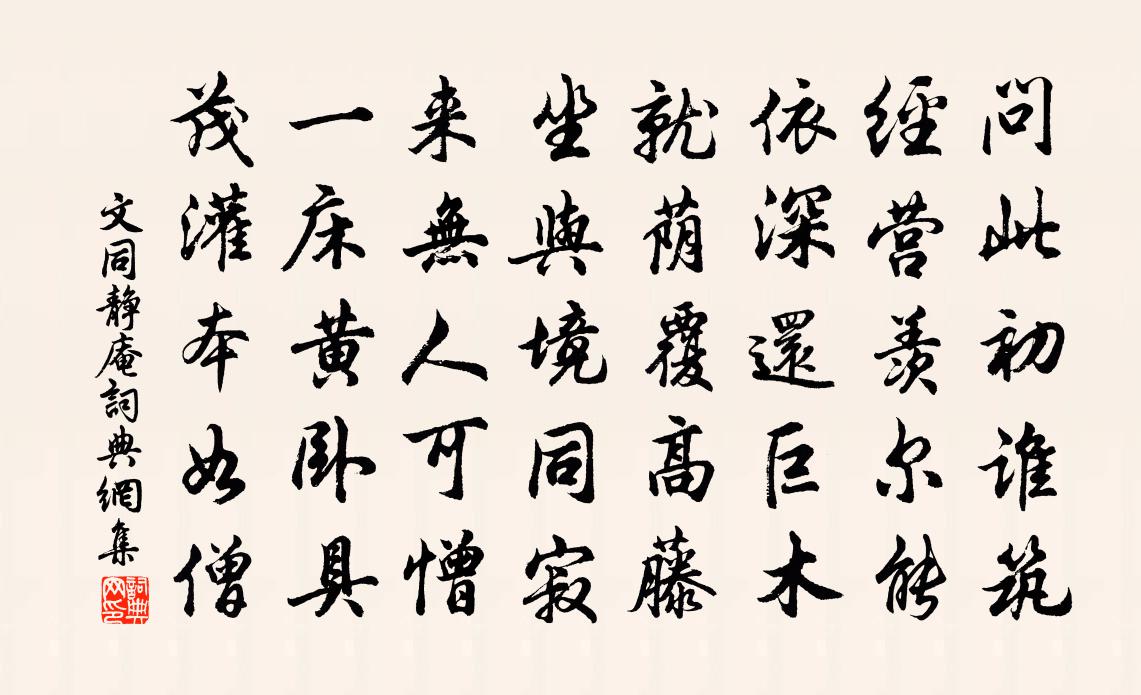 問此初谁筑
經营羨尔能
依深還巨木
就荫覆高藤
坐與境同寂
来無人可憎
一床黄卧具
茂灌本如僧
文同静庵詞典網集
詞典网印